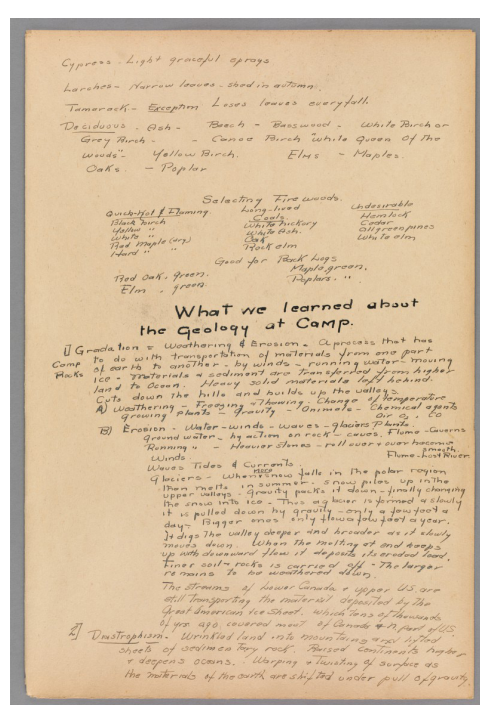 Cypress. Light graceful sprays
Larches - Narrow leaves - shed in autumn.
Tamarack - Exception Loses leaves every fall.
Deciduous. Ash - Beech - Basswood - White Birch or
Grey Birch - - Canoe Birch "White Queen of the
Woods" - Yellow Birch. Elms - Maples.
Oaks. - Poplar
Selecting Fire woods.
Quick-Hot & Flaming Long-lived Coals. Undesirable
Black birch White hickory Hemlock
Yellow " White Ash. Cedar
White " Oak All green pines
Red Maple (dry) Rock elm White elm
Hard " "
Good for Back Logs
Red Oak, green. Maple, green.
Elm, green. Poplars. "
What we learned about
the Geology at Camp.
1] Gradation = Weathering & Erosion = A process that has
Camp to do with transportation of materials from one part
Rocks of earth to another - by winds - running water - moving
ice - Materials & sediment are transferred from higher
land to Ocean. Heavy solid materials left behind.
Cuts down the hills and builds up the valleys.
A) Weathering - Freezing & Thawing - Change of Temperature
growing plants - Gravity - Animals - Chemical agents
Air O2 CO
B) Erosion - Water - winds - waves - glaciers Plants.
ground water - by action on rock - caves. Flume - Caverns
Running " - Heavier stones - roll over & over become smooth
Winds. Flume - Lost River
Waves Tides & Currents.
Glaciers - Where more snow falls in the polar region
than melts in summer. Snow piles up in the
upper valleys - gravity packs it down - finally changing
the snow into ice - Thus a glacier is formed & slowly
it is pulled down by gravity - only a few feet a
day - Bigger ones only flow a few feet a year.
It digs the valley deeper and broader as it slowly
moves down. When the melting at end keeps
up with downward flow it deposits its eroded load.
Finer soil - rocks is carried off - The larger
remains to be weathered down.
The streams of lower Canada & upper U.S. are
still transporting the material deposited by the
Great American Ice Sheet. which tens of thousands
of yrs ago covered most of Canada & N. part of U.S.
2] Diastrophism. Wrinkled land into mountains and lifted
sheets of sedimentary rock. Raised continents higher
& deepens oceans. Warping & Twisting of surface as
the materials of the earth are shifted under pull of gravity.